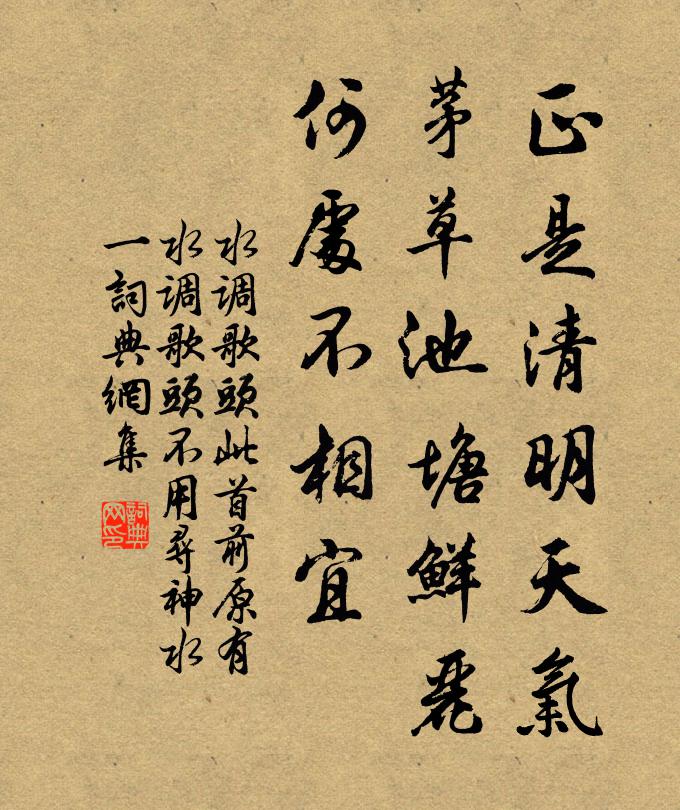 正是清明天氣
茅草池塘鮮麗
何處不相宜
水调歌頭此首前原有
水调歌頭不用尋神水
一詞典網集
詞典
网印